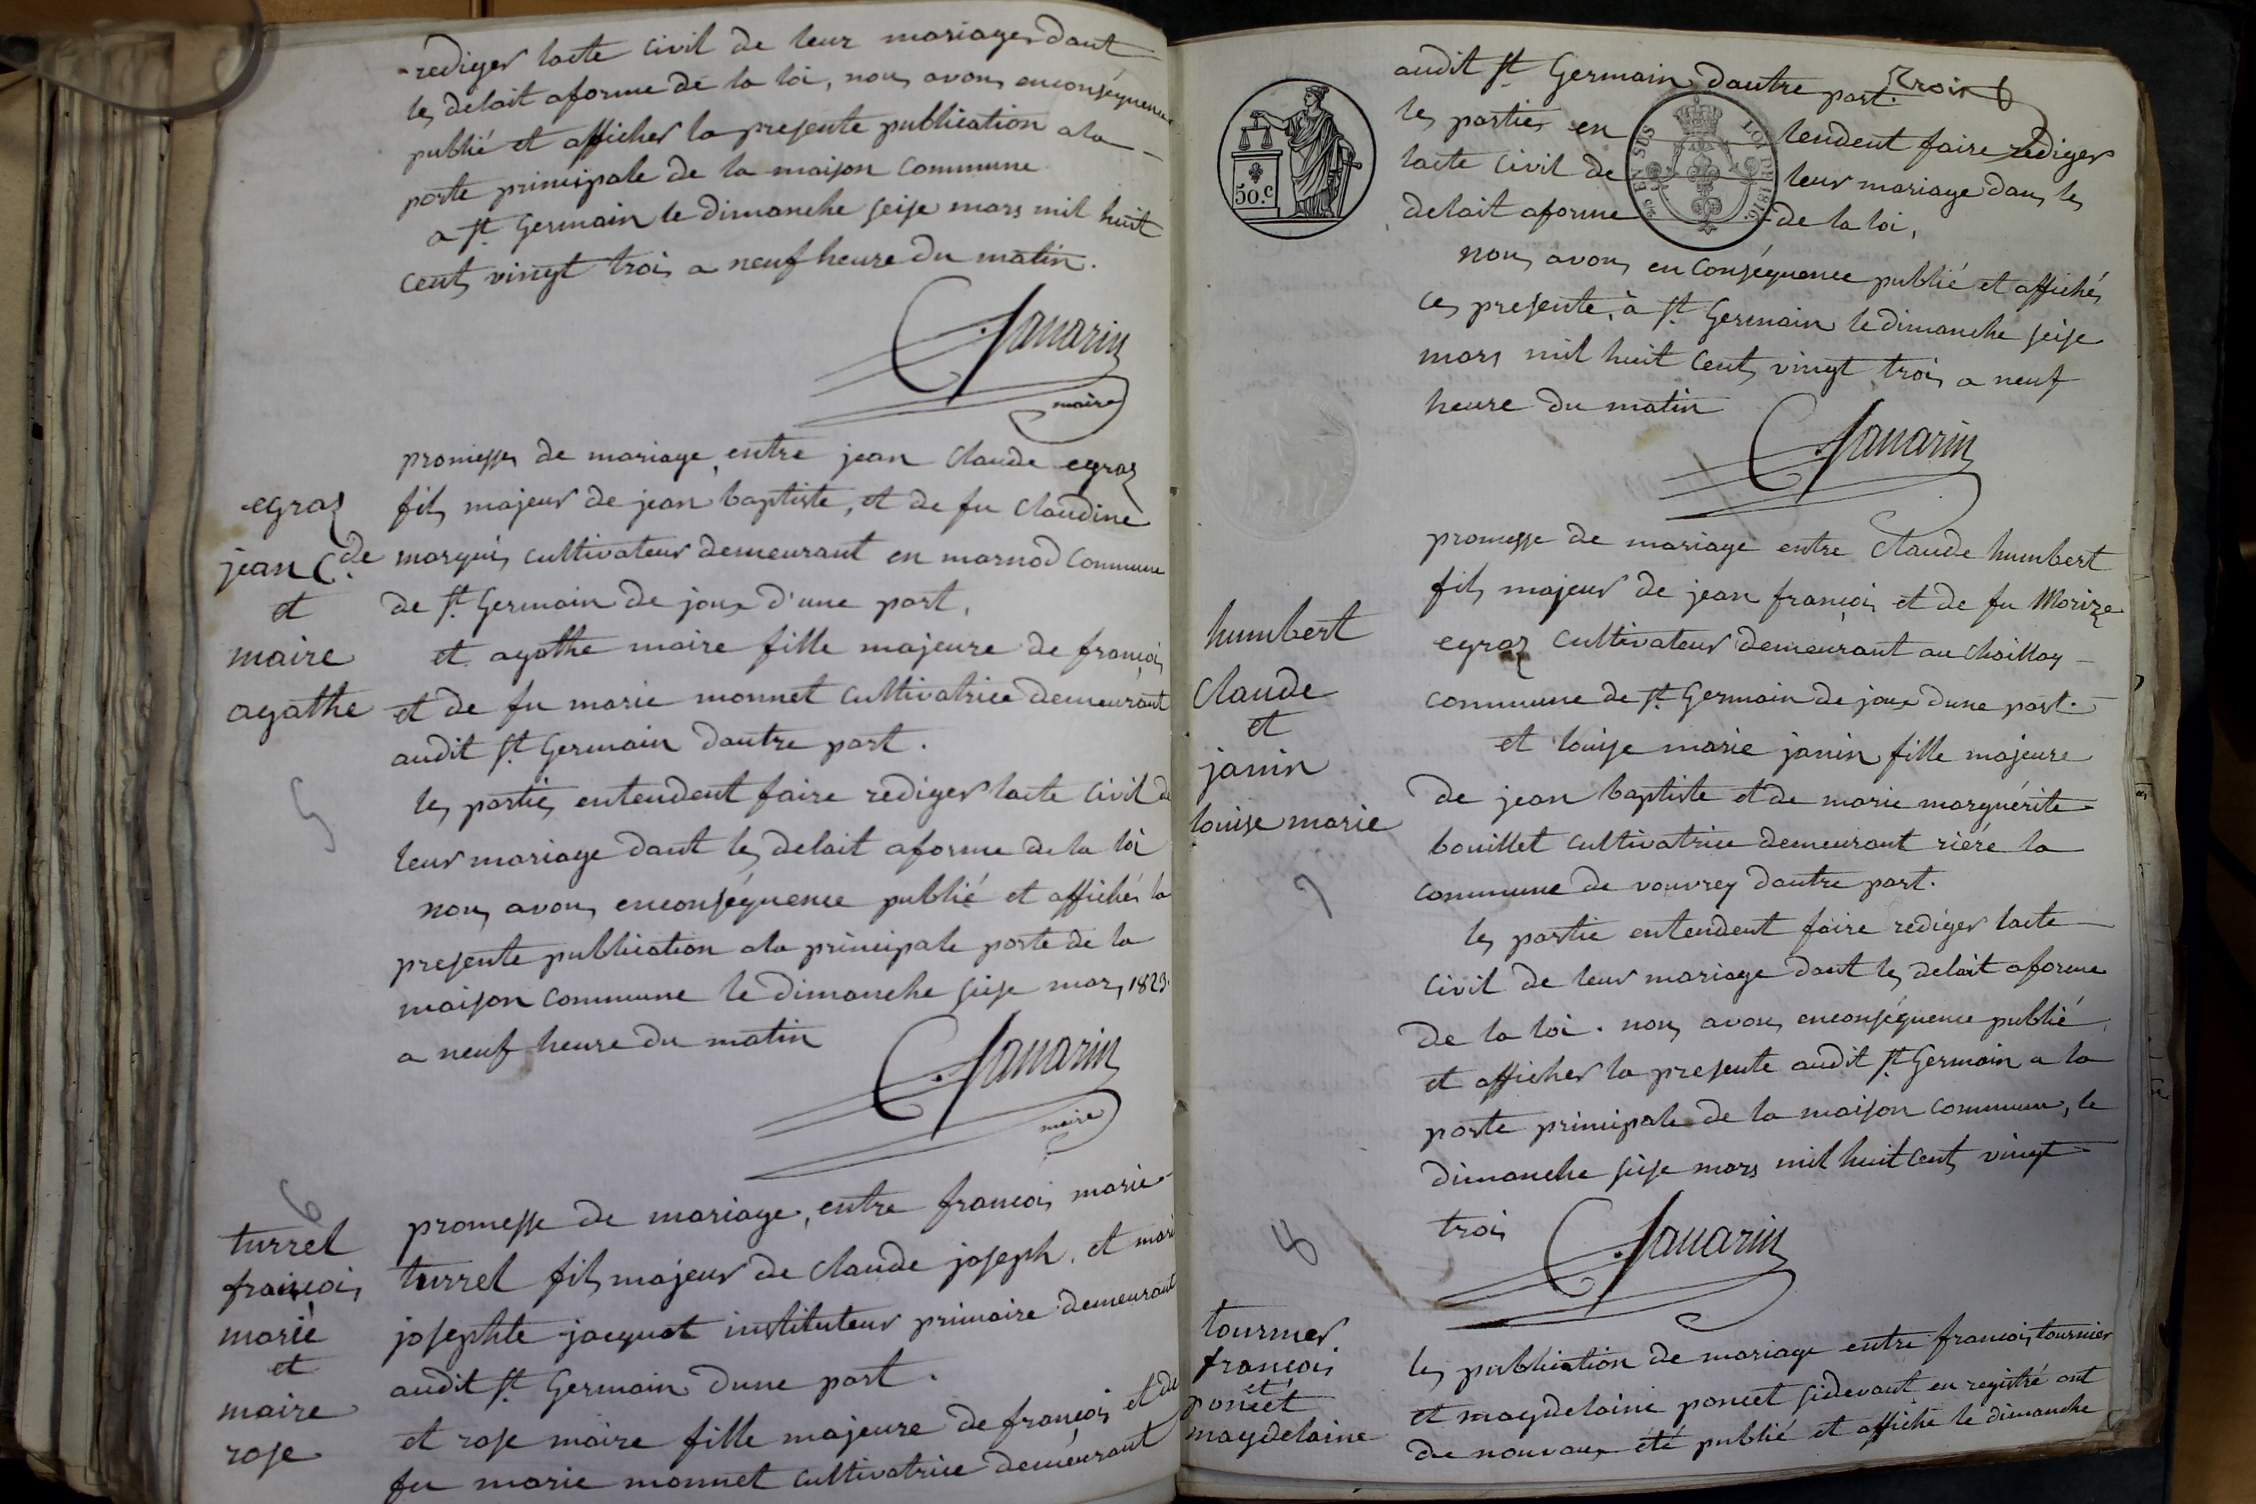 rediger lacte civil de leur mariage dant
les delait aforme de la loi, nous avons enconséquence
publié et afficher la presente publication a la
porte principale de la maison commune
a St Germain le dimanche seise mars mil huit
cents vingt trois a neuf heure du matin.
Savarin
maire
promesse de mariage, entre jean Claude egraz
fils majeur de jean baptiste, et de fu Claudine
marquis cultivateur demeurant en marnod Commune
de St Germain de joux d'une part,
et agathe maire fille majeure de françois
et de fu marie monnet cultivatrice demeurant
audit St Germain dautre part.
les parties entendent faire rediger lacte civil de
leur mariage dant les delait aforme de la loi
nous avons enconséquence publié et affichés la
presente publication ala principale porte de la
maison commune le dimanche seise mars 1823.
a neuf heure du matin
Savarin
maire
egraz
jean Cde
et
maire
agathe
5
6
promesse de mariage, entre françois marie
turrel fils majeur de claude joseph, et mari
josephte jacquot instituteur primaire demeurant
audit St Germain dune part.
et rose maire fille majeure de françois et de
fu marie monnet cultivatrice demeurant
turrel
françois
marie
et
maire
rose
trois
audit St Germain dautre part.
les parties en tendent faire rediger
lacte civil de leur mariage dans les
delait aforme de la loi,
50.c
LOI DE 1816.
EN SUS
nous avons en conséquence publié et affichés
ces presente, à St Germain le dimanche seise
mars mil huit cents vingt trois a neuf
heure du matin
Savarin
promesse de mariage entre Claude humbert
fils majeur de jean françois et de fu Morize
egraz cultivateur demeurant au Chaillay
commune de St Germain de joux dune part.
et louise marie janin fille majeure
de jean baptiste et de marie marguérite
bouillet cultivatrice demeurant riére la
commune de vouvrey dautre part.
les partie entendent faire rediger lacte
civil de leur mariage dant les delait aforme
de la loi. nous avons enconséquence publié
et afficher la presente audit St Germain a la
porte principale de la maison commune, le
dimanche seise mars mil huit cents vingt
trois
Savarin
humbert
Claude
et
janin
louise marie
7
8
les publication de mariage entre françois tournier
et magdelaine poncet sidevant en registré ont
de nouvaux été publié et affiché le dimanche
tournier
françois
et
poncet
magdelaine